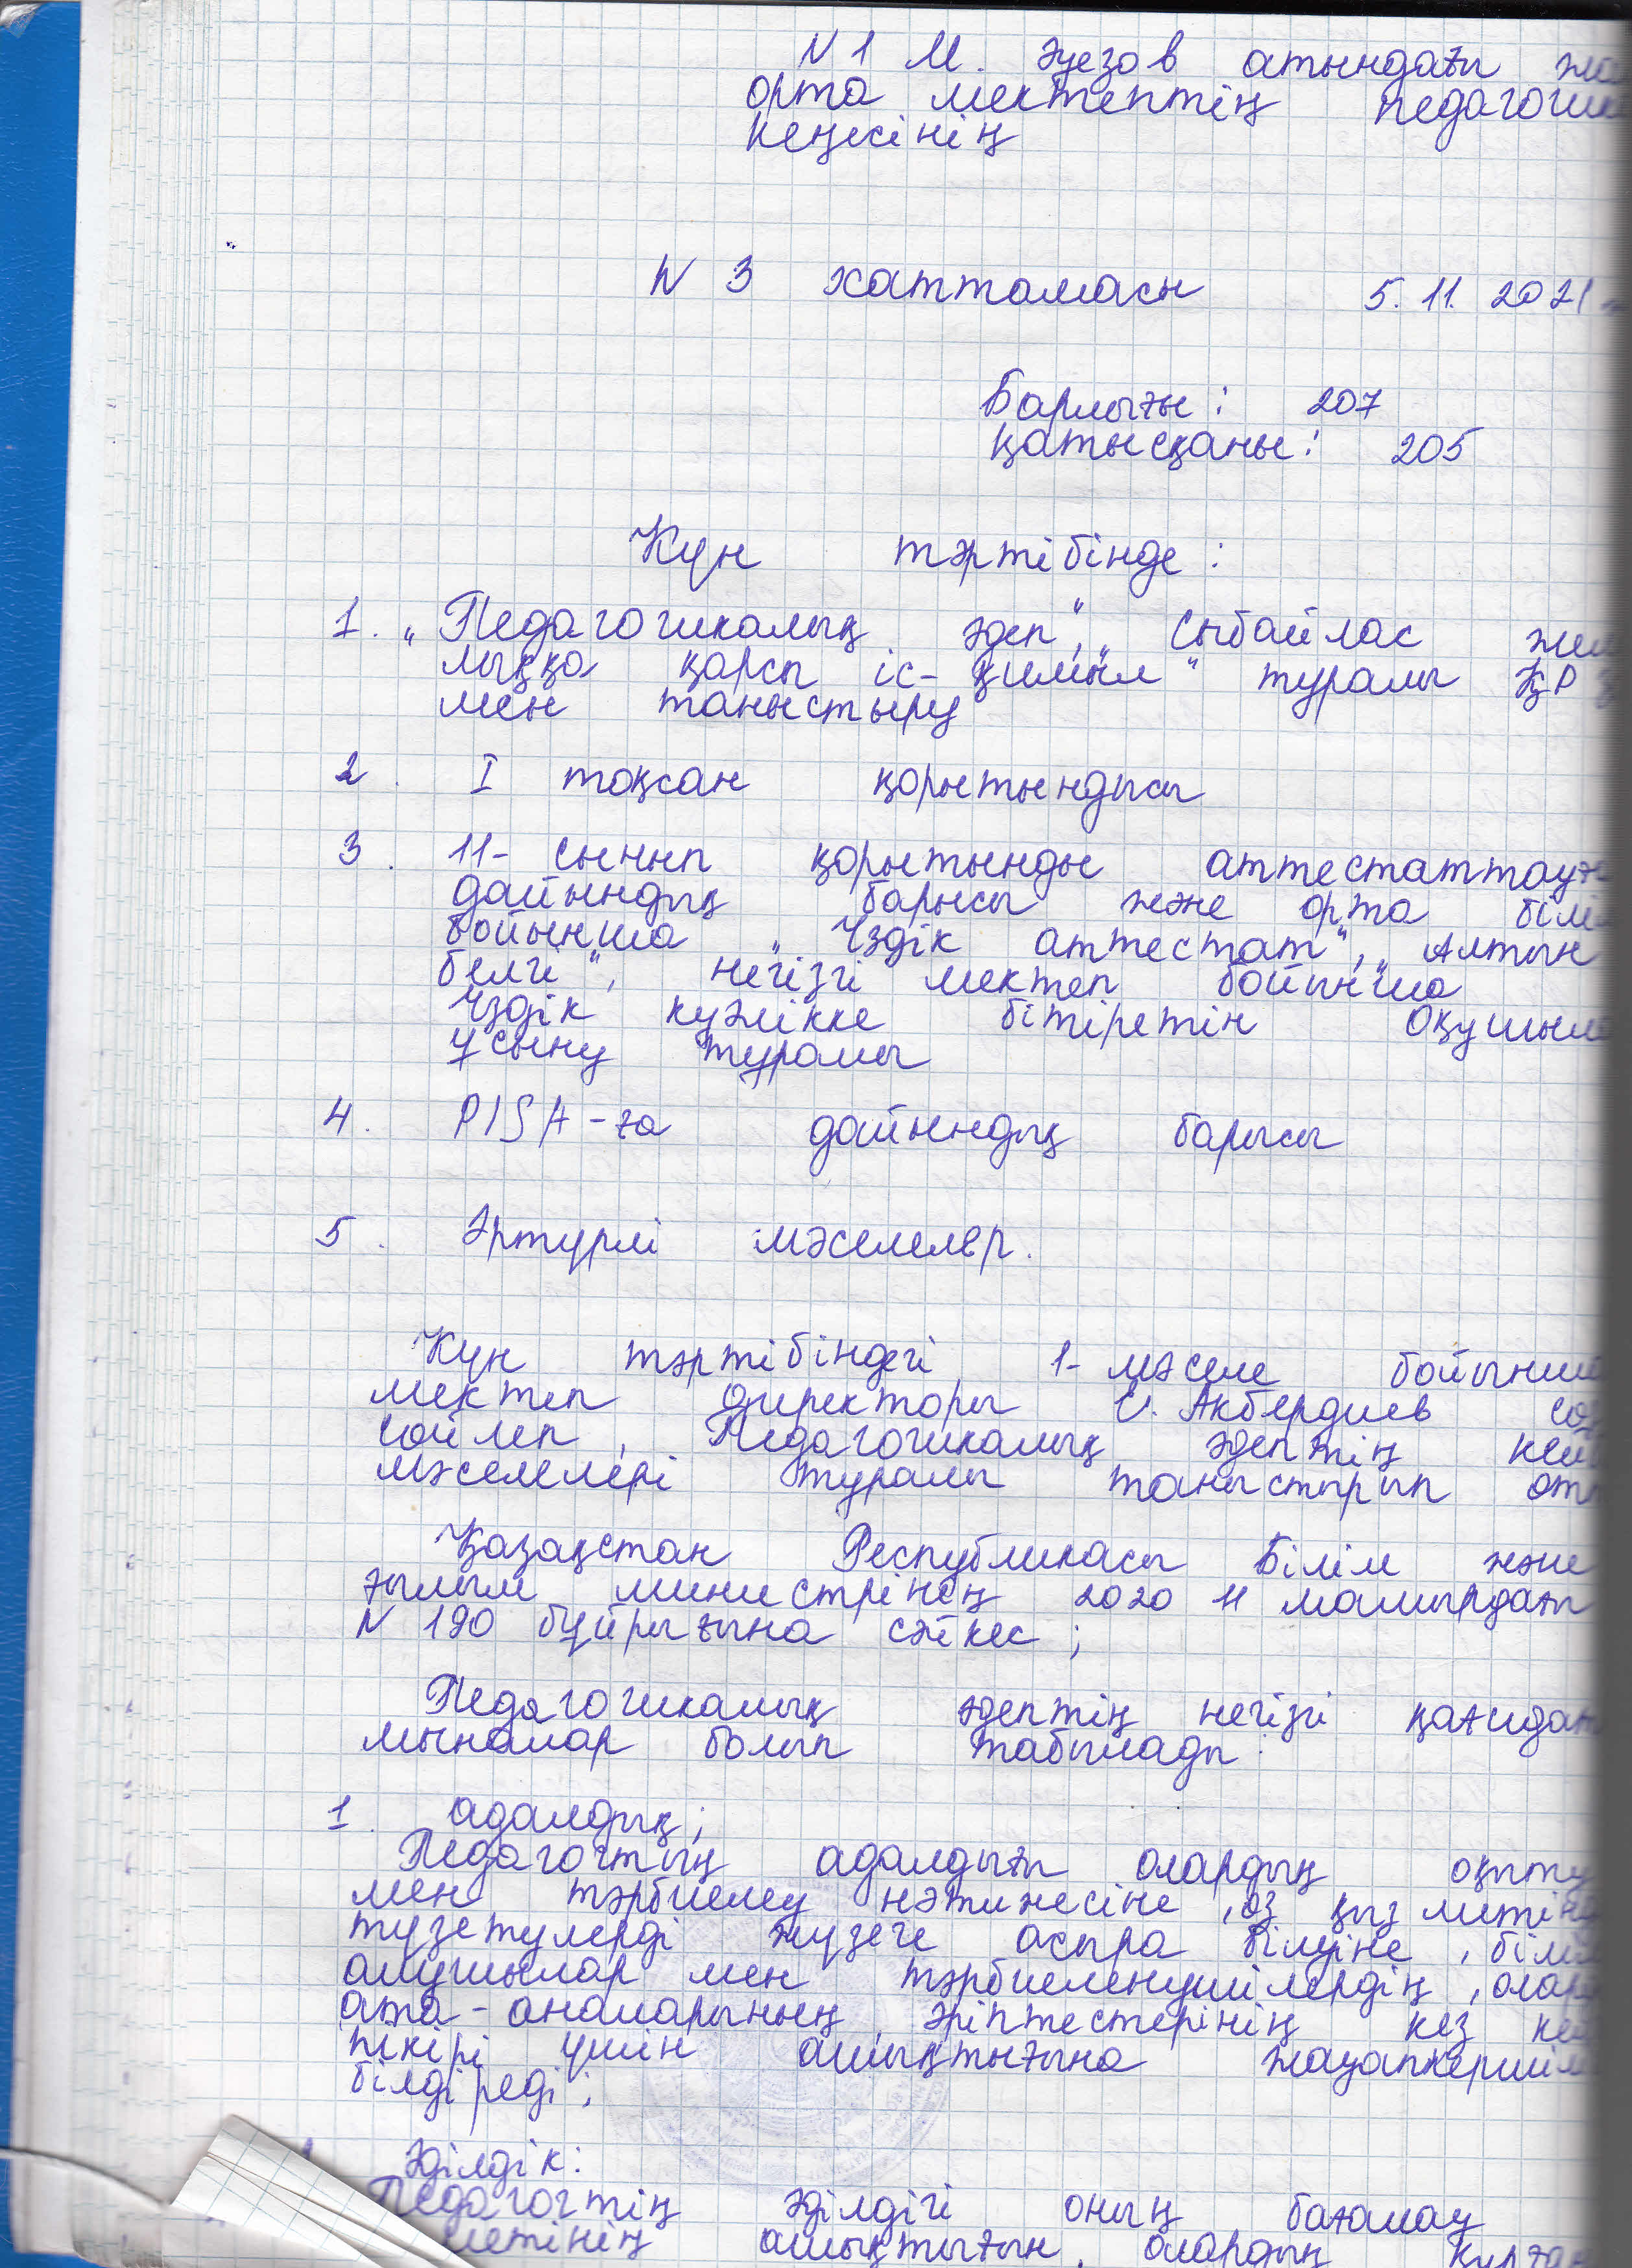 N 1 М. Әуезов атындағы жа
орта мектептің педагогик
кеңесінің
N 3 хаттамасы 5. 11. 2021
Барлығы: 207
Қатысқаны: 205
Күн тәртібінде:
1. „Педагогикалық әдеп", „Сыбайлас жем
лыққа қарсы іс-қимыл" туралы ҚР
мен таныстыру
2. I тоқсан қорытындысы
3. 11- сынып қорытынды аттестаттауға
дайындық барысы және орта білі
бойынша „Үздік аттестат", „Алтын
белгі", негізгі мектеп бойынша
Үздік куәлікке бітіретін оқушыл
ұсыну туралы
4. PISA-ға дайындық барысы
5. Әртүрлі мәселелер.
Күн тәртібіндегі 1- мәселе бойынша
мектеп директоры Е. Акбердиев сө
сөйлеп, Педагогикалық әдептің кей
мәселелері туралы таныстырып оты
Қазақстан Республикасы Білім және
ғылым министрінің 2020 11 мамырдағы
N 190 бұйрығына сәйкес;
Педагогикалық әдептің негізгі қағидат
мыналар болып табылады:
1. адалдық;
Педагогтың адалдығы олардың оқыту
мен тәрбиелеу нәтижесіне, өз қызметін
түзетулерді жүзеге асыра білуіне, білі
алушылар мен тәрбиеленушілердің, олар
ата-аналарының, әріптестерінің кез кел
пікірі үшін ашықтығына жауапкершіл
білдіреді;
Әділдік:
Педагогтің әділдігі оның бағалау
метінің ашықтығын, олардың құрға